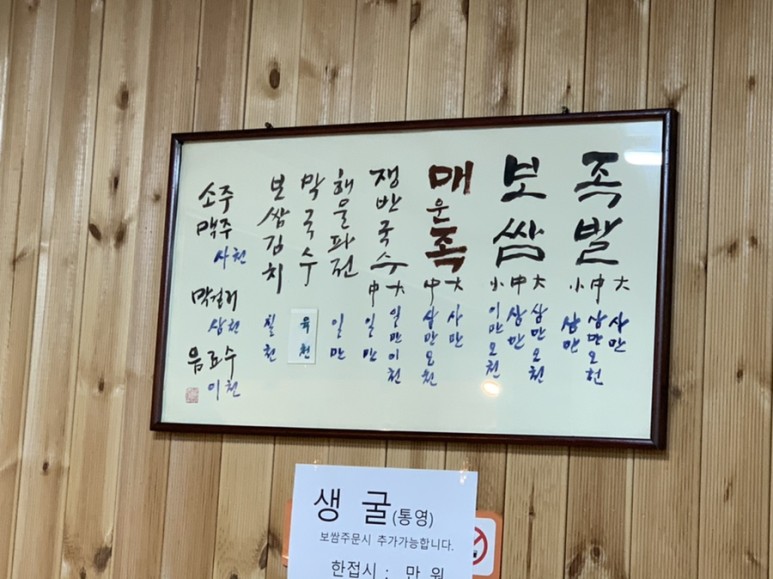 족발
大 사만
中 삼만오천
小 삼만
보쌈
大 삼만오천
中 삼만
小 이만오천
매운족
大 사만
中 삼만오천
쟁반국수
大 일만이천
中 일만
해물파전
일만
막국수
육천
보쌈김치
칠천
소주
맥주
사천
막걸리
삼천
음료수
이천
생 굴(통영)
보쌈주문시 추가가능합니다.
한접시 : 만 원